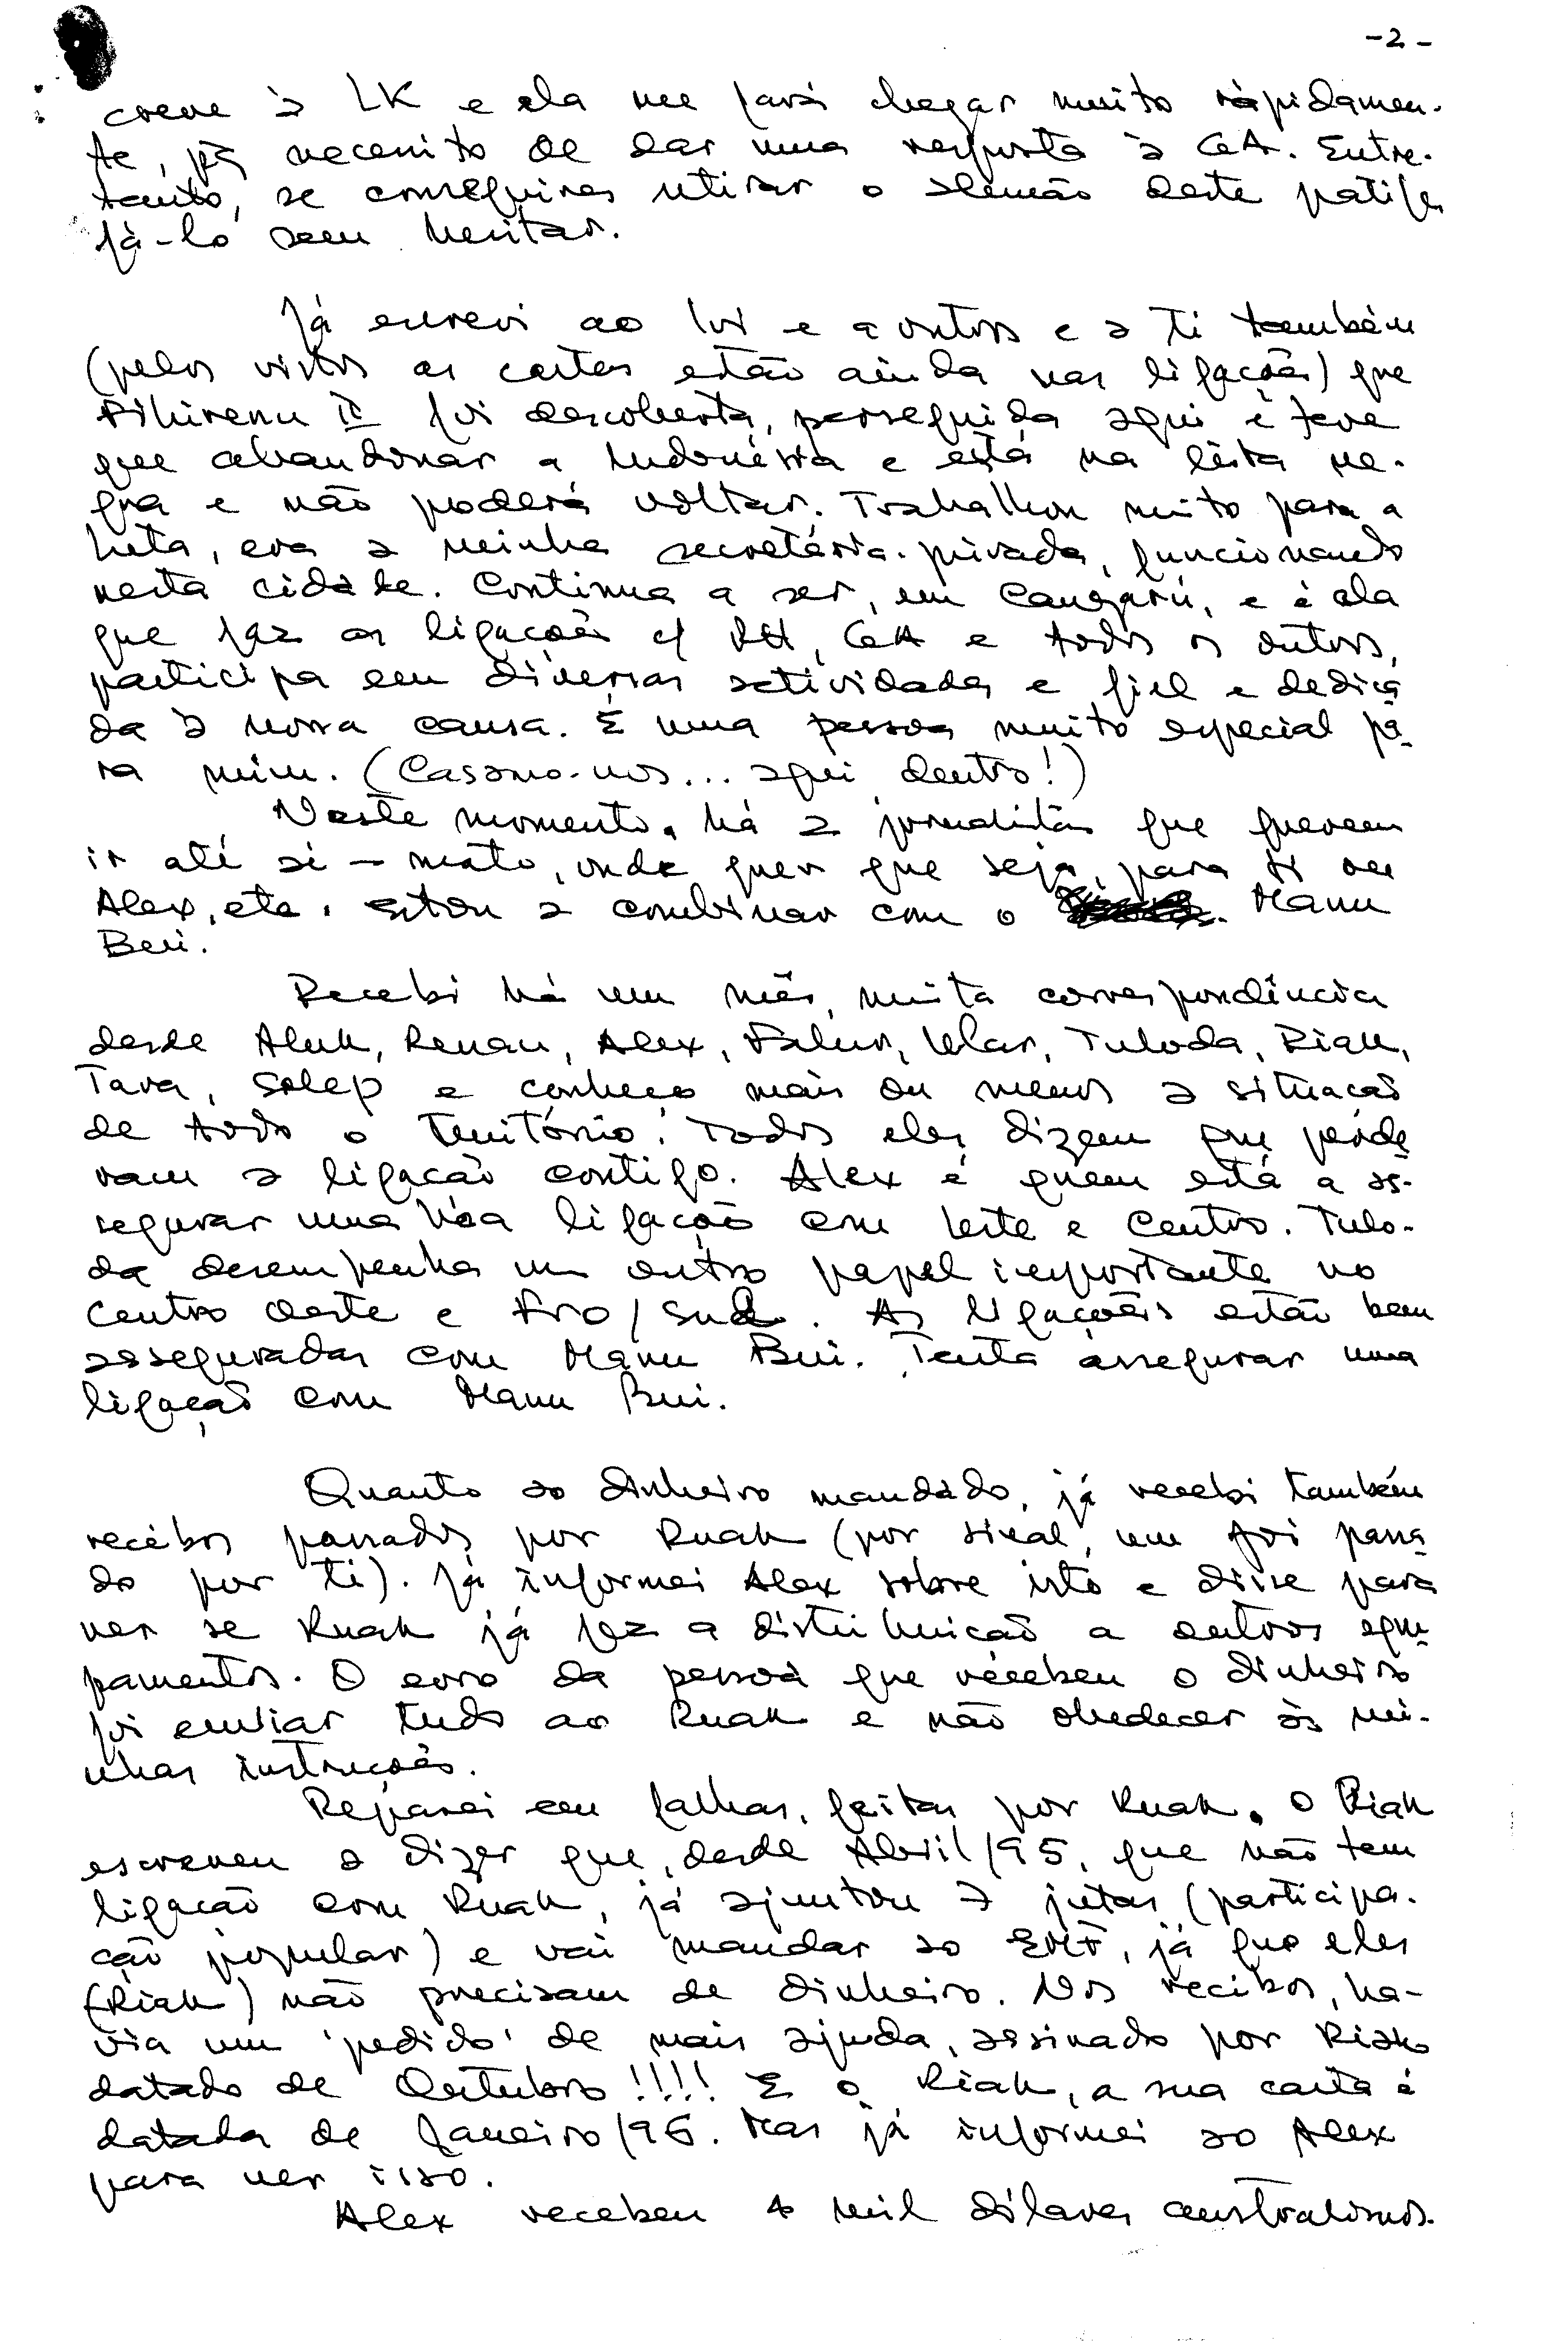 -2-
creve à LK e ela me fará chegar muito rápidamen-
te, pq necessito de dar uma resposta à CA. Entre-
tanto, se conseguires retirar o alemão deste patife
fá-lo sem hesitar.
Já escrevi ao e a outros e a ti também
(pelos vistos as cartas estão ainda nas ligações) que
II foi descoberta, perseguida aqui e teve
que abandonar a Indonésia e está na lista ne-
gra e não poderá voltar. Trabalhou muito para a
luta, era a minha secretária-privada, funcionando
nesta cidade. Continua a ser, em Cangarú, e é ela
que faz as ligações c/ RH, e todos os outros,
participa em diversas actividades e fiel e dedica
da à nossa causa. É uma pessoa muito especial pa-
ra mim. (Casamo-nos... aqui dentro!)
Neste momento, há 2 jornalistas que querem
ir até aí - mato, onde quer que seja, para ou
Alex, etc. Estou a combinar com o Manu
Bui.
Recebi há um mês, muita correspondência
desde Aluk, Renan, Alex, Falur, Ular, Tuloda, Riak,
Tara, Solep e conheço mais ou menos a situação
de todo o Território. Todos eles dizem que perde
ram a ligação contigo. Alex é quem está a as-
segurar uma bôa ligação com Leste e Centro. Tulo-
da desempenha um outro papel importante no
Centro Oeste e Fro/Sul. As ligações estão bem
asseguradas com Manu Bui. Tenta assegurar uma
ligação com Manu Bui.
Quanto ao dinheiro mandado, já recebi também
recibos passados por Ruak (por sinal, um foi passa
do por ti). Já informei Alex sobre isto e disse para
ver se Ruak já fez a distribuição a outros agru
pamentos. O erro da pessoa que recebeu o dinheiro
foi enviar tudo ao Ruak e não obedecer às mi-
nhas instruções.
Reparei em falhas, feitas por Ruak. O Riak
escreveu a dizer que, desde Abril/95, que não tem
ligação com Ruak, já ajuntou 7 jutas (participa-
ção popular) e vai mandar ao EMF, já que eles
(Riak) não precisam de dinheiro. Nos recibos, ha-
via um 'pedido' de mais ajuda, assinado por Riak
datado de Outubro!!!! E o Riak, a sua carta é
datada de Janeiro/96. Mas já informei ao Alex
para ver isso.
Alex recebeu 4 mil dólares australianos.